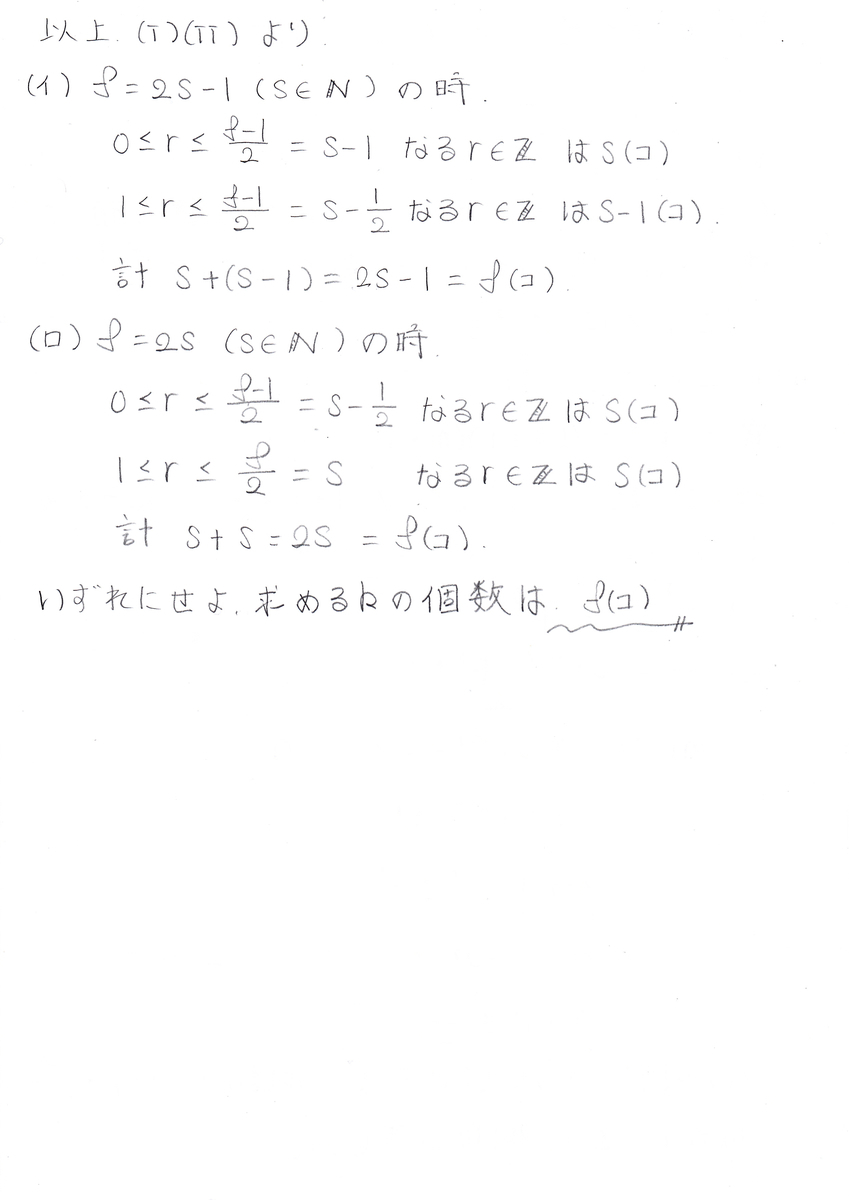 以上.(i)(ii)より.
(イ) f=2S-1 (S∈ℕ) の時.
0≤r≤(f-1)/2 = S-1 なるr∈ℤ はS(コ)
1≤r≤(f-1)/2 = S-1/2 なるr∈ℤ はS-1(コ).
計 S+(S-1)=2S-1=f(コ).
(ロ) f=2S (S∈ℕ) の時.
0≤r≤(f-1)/2 = S-1/2 なるr∈ℤはS(コ)
1≤r≤f/2 = S なるr∈ℤは S(コ)
計 S+S=2S = f(コ).
いずれにせよ,求めるkの個数は. f(コ)